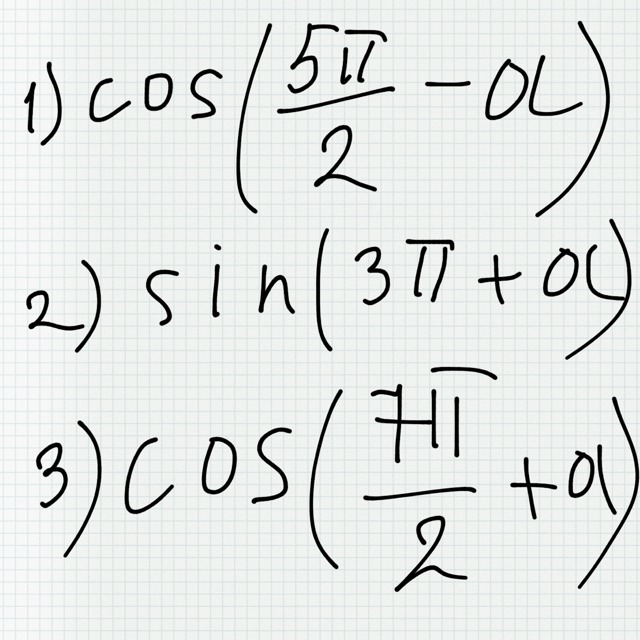 1) cos(5π/2 - α)
2) sin(3π + α)
3) cos(7π/2 + α)